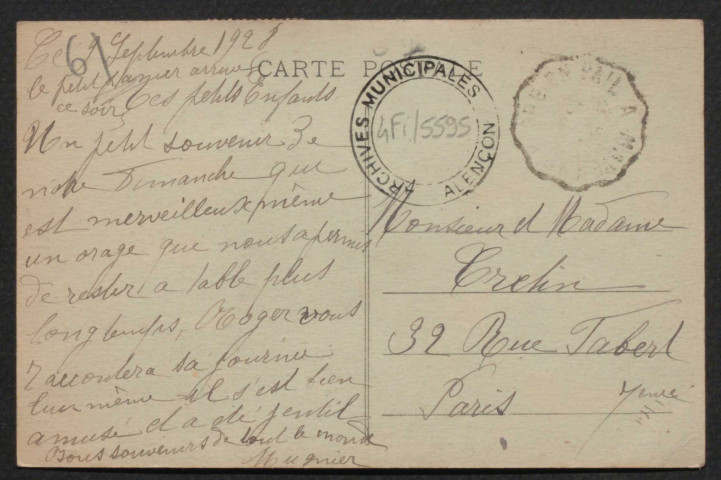 61
Ce 2 Septembre 1928
le petit panier arrive
ce soir
CARTE POSTALE
Ces petits Enfants
Un petit souvenir de
notre Dimanche qui
est merveilleux même
un orage que nous a permis
de rester a table plus
longtemps, Roger vous
racontera sa journée
lui même il s'est bien
amusé et a été gentil
Bons souvenirs de tout le monde
Mugnier
ARCHIVES MUNICIPALES
4Fi/5595
ALENÇON
PAIL A
Monsieur et Madame
Cretin
32 Rue
Paris